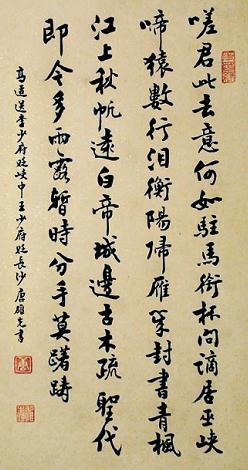 嗟君此去意何如駐馬銜杯問謫居巫峽
啼猿數行泪衡陽歸雁幾封書青楓
江上秋帆遠白帝城邊古木疏聖代
即今多雨露暫時分手莫躇躊
高適送李少府貶峽中王少府貶長沙 唐雄書